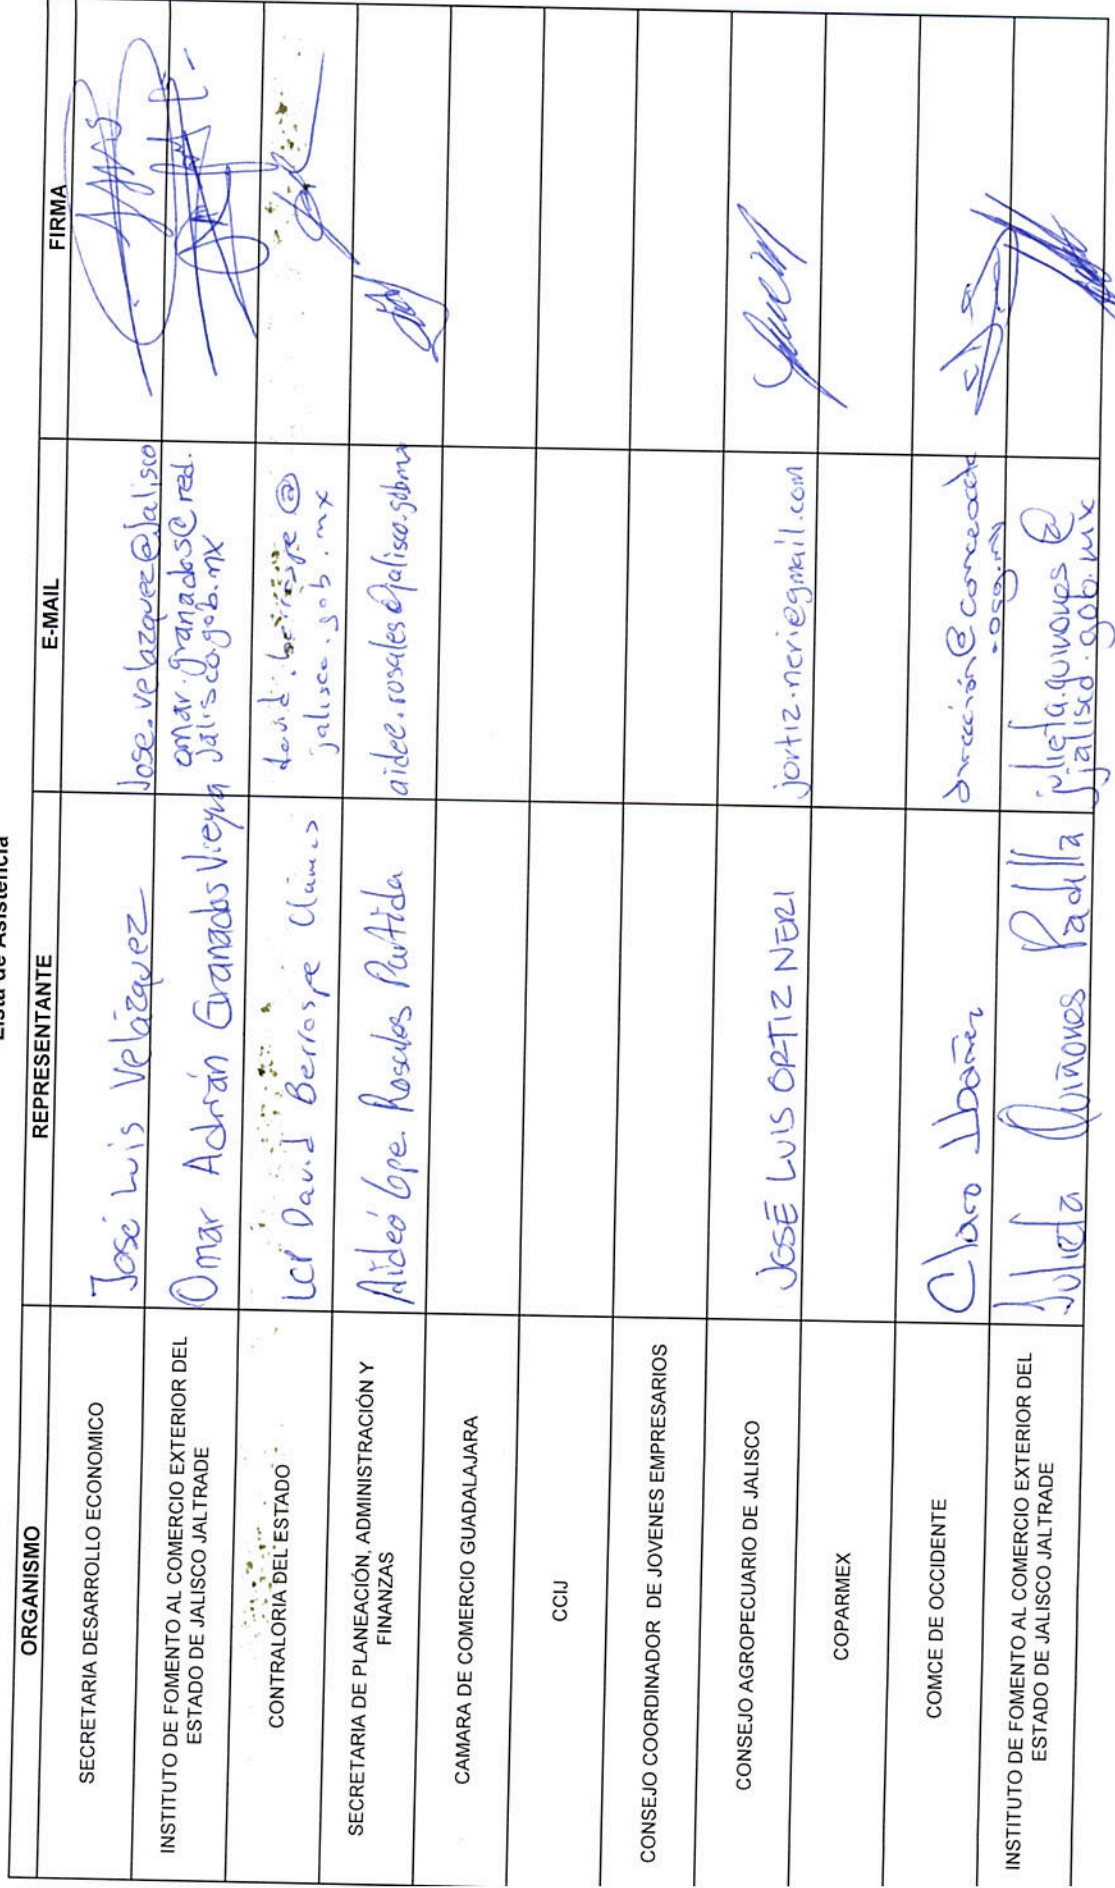 Lista de Asistencia
ORGANISMO REPRESENTANTE E-MAIL FIRMA
SECRETARIA DESARROLLO ECONOMICO José Luis Velázquez Jose.velazquez@jalisco
INSTITUTO DE FOMENTO AL COMERCIO EXTERIOR DEL
ESTADO DE JALISCO JALTRADE
Omar Adrián Granados Vieyra
omar.granados@red.
jalisco.gob.mx
CONTRALORIA DEL ESTADO
LCP David Berrospe
david.berrospe@
jalisco.gob.mx
SECRETARIA DE PLANEACIÓN, ADMINISTRACIÓN Y
FINANZAS
Aideé Gpe. Rosales Partida
aidee.rosales@jalisco.gobmx
CAMARA DE COMERCIO GUADALAJARA
CCIJ
CONSEJO COORDINADOR DE JOVENES EMPRESARIOS
CONSEJO AGROPECUARIO DE JALISCO JOSÉ LUIS ORTIZ NERI jortiz.neri@gmail.com
COPARMEX
COMCE DE OCCIDENTE
Ibañez
INSTITUTO DE FOMENTO AL COMERCIO EXTERIOR DEL
ESTADO DE JALISCO JALTRADE
Julieta Quiñones Padilla
julieta.quinones@
jalisco.gob.mx